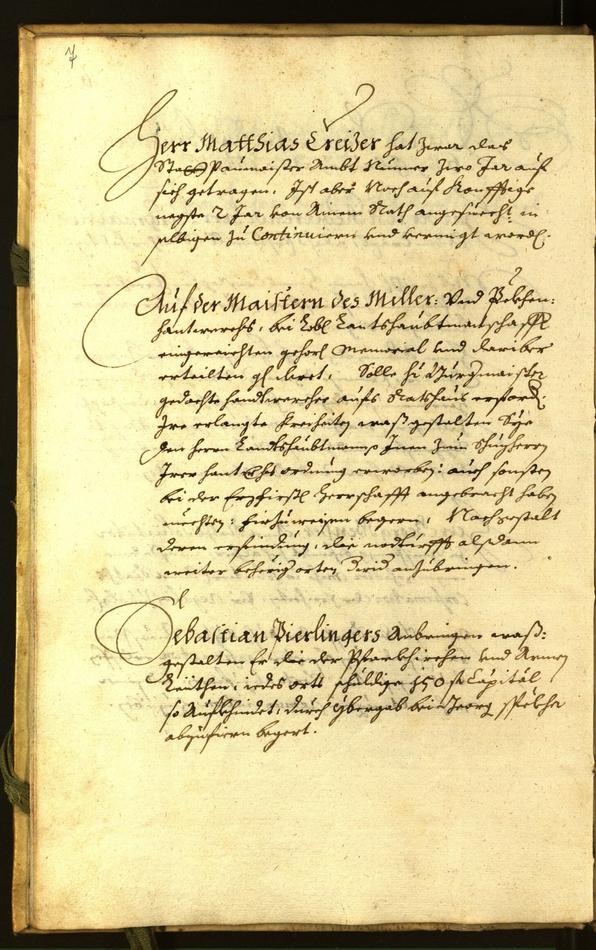 Herr Matthias Creizer hat zwar das
Statt Paumaister Ambt Nunner zwo Jar auf
sich getragen, Ist aber Noch auf Konfftige
negste 2 Jar von Ainem Rath angesuecht, in
selbigen zu Continuiern und vermigt worden.
Auf der Maistern des Miller: Und Pekhen:
hantwerchs, bei Löbl Landtshaubtmanschafft
eingereichten gehors Memorial und dariber
erteilten decret, Solle hr Burgmaister
gedachte handtwercher aufs Rathaus erfordern
Ire erlangte Freiheiten waß gestalten Sye
den herrn Landtshaubtmann Inen zum Schuzherrn
Irer hant ordnung erworben: auch sonsten
bei der Erzfirstl Herrschafft angebracht haben
mechten: firzuweisen begern, Nach gestalt
deren erfindung, die notturfft alsdann
weiter behörig orten anzubringen.
Sebastian Pierlingers Anbringen waß:
gestalten Er die der Pfarrkhirchen und Armen
Leithen, iedes orts schuldige 350 f Capital
so Aufkhindet, durch ybergab bei Georg
abzufiern begert.